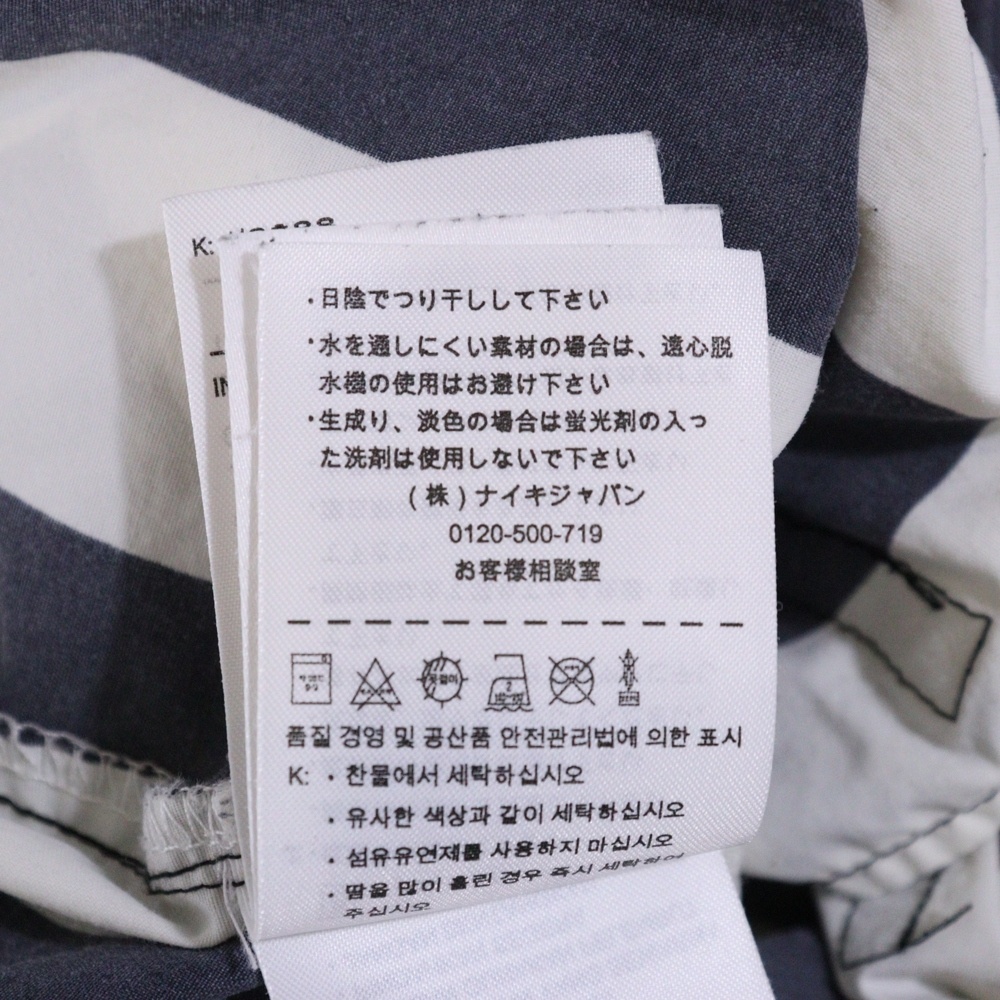 K:
IN
・日陰でつり干しして下さい
・水を通しにくい素材の場合は、遠心脱
水機の使用はお避け下さい
・生成り、淡色の場合は蛍光剤の入っ
た洗剤は使用しないで下さい
(株)ナイキジャパン
0120-500-719
お客様相談室
품질 경영 및 공산품 안전관리법에 의한 표시
K: · 찬물에서 세탁하십시오
· 유사한 색상과 같이 세탁하십시오
· 섬유유연제를 사용하지 마십시오
· 땀을 많이 흘린 경우 즉시 세탁하여
주십시오